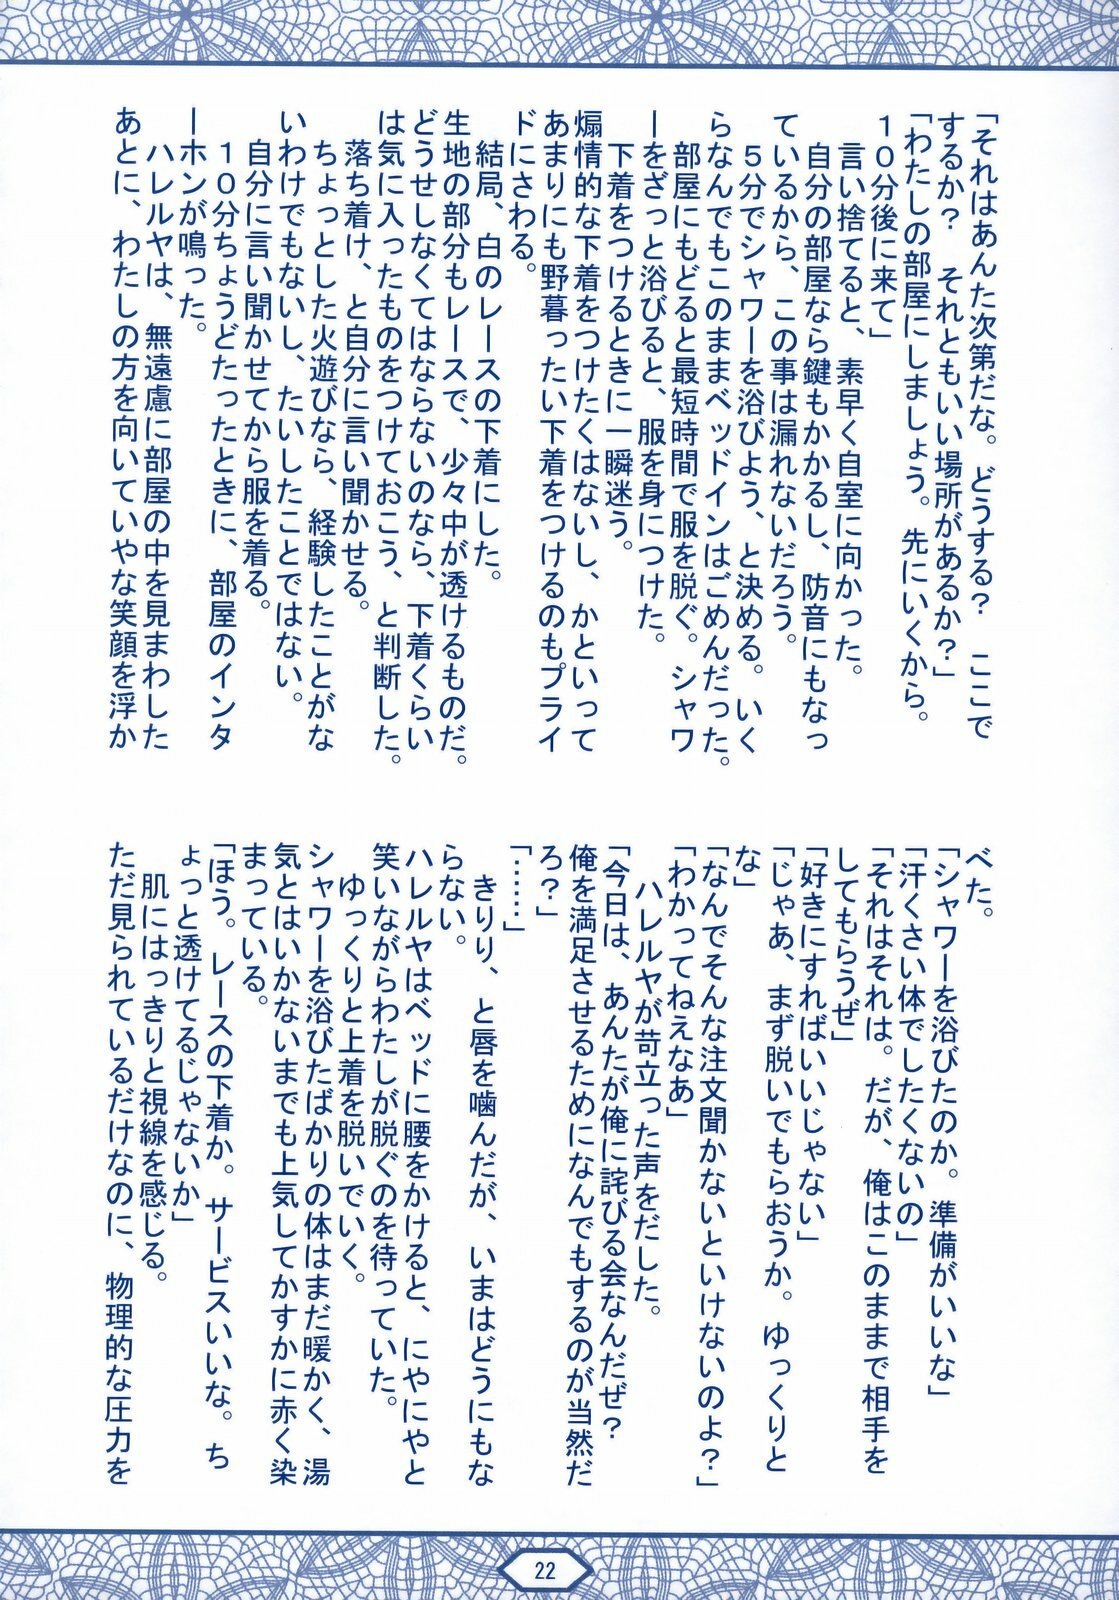 「それはあんた次第だな。どうする？　ここで
するか？　それともいい場所があるか？」
「わたしの部屋にしましょう。先にいくから。
１０分後に来て」
　言い捨てると、素早く自室に向かった。
　自分の部屋なら鍵もかかるし、防音にもなっ
ているから、この事は漏れないだろう。
　５分でシャワーを浴びよう、と決める。いく
らなんでもこのままベッドインはごめんだった。
　部屋にもどると最短時間で服を脱ぐ。シャワ
ーをざっと浴びると、服を身につけた。
　下着をつけるときに一瞬迷う。
煽情的な下着をつけたくはないし、かといって
あまりにも野暮ったい下着をつけるのもプライ
ドにさわる。
　結局、白のレースの下着にした。
生地の部分もレースで、少々中が透けるものだ。
どうせしなくてはならないのなら、下着くらい
は気に入ったものをつけておこう、と判断した。
　落ち着け、と自分に言い聞かせる。
　ちょっとした火遊びなら、経験したことがな
いわけでもないし、たいしたことではない。
　自分に言い聞かせてから服を着る。
　１０分ちょうどたったときに、部屋のインタ
ーホンが鳴った。
　ハレルヤは、無遠慮に部屋の中を見まわした
あとに、わたしの方を向いていやな笑顔を浮か
べた。
「シャワーを浴びたのか。準備がいいな」
「汗くさい体でしたくないの」
「それはそれは。だが、俺はこのままで相手を
してもらうぜ」
「好きにすればいいじゃない」
「じゃあ、まず脱いでもらおうか。ゆっくりと
な」
「なんでそんな注文聞かないといけないのよ？」
「わかってねえなあ」
　ハレルヤが苛立った声をだした。
「今日は、あんたが俺に詫びる会なんだぜ？
俺を満足させるためになんでもするのが当然だ
ろ？」
「……」
　きりり、と唇を噛んだが、いまはどうにもな
らない。
ハレルヤはベッドに腰をかけると、にやにやと
笑いながらわたしが脱ぐのを待っていた。
　ゆっくりと上着を脱いでいく。
シャワーを浴びたばかりの体はまだ暖かく、湯
気とはいかないまでも上気してかすかに赤く染
まっている。
「ほう。レースの下着か。サービスいいな。ち
ょっと透けてるじゃないか」
　肌にはっきりと視線を感じる。
ただ見られているだけなのに、物理的な圧力を
22